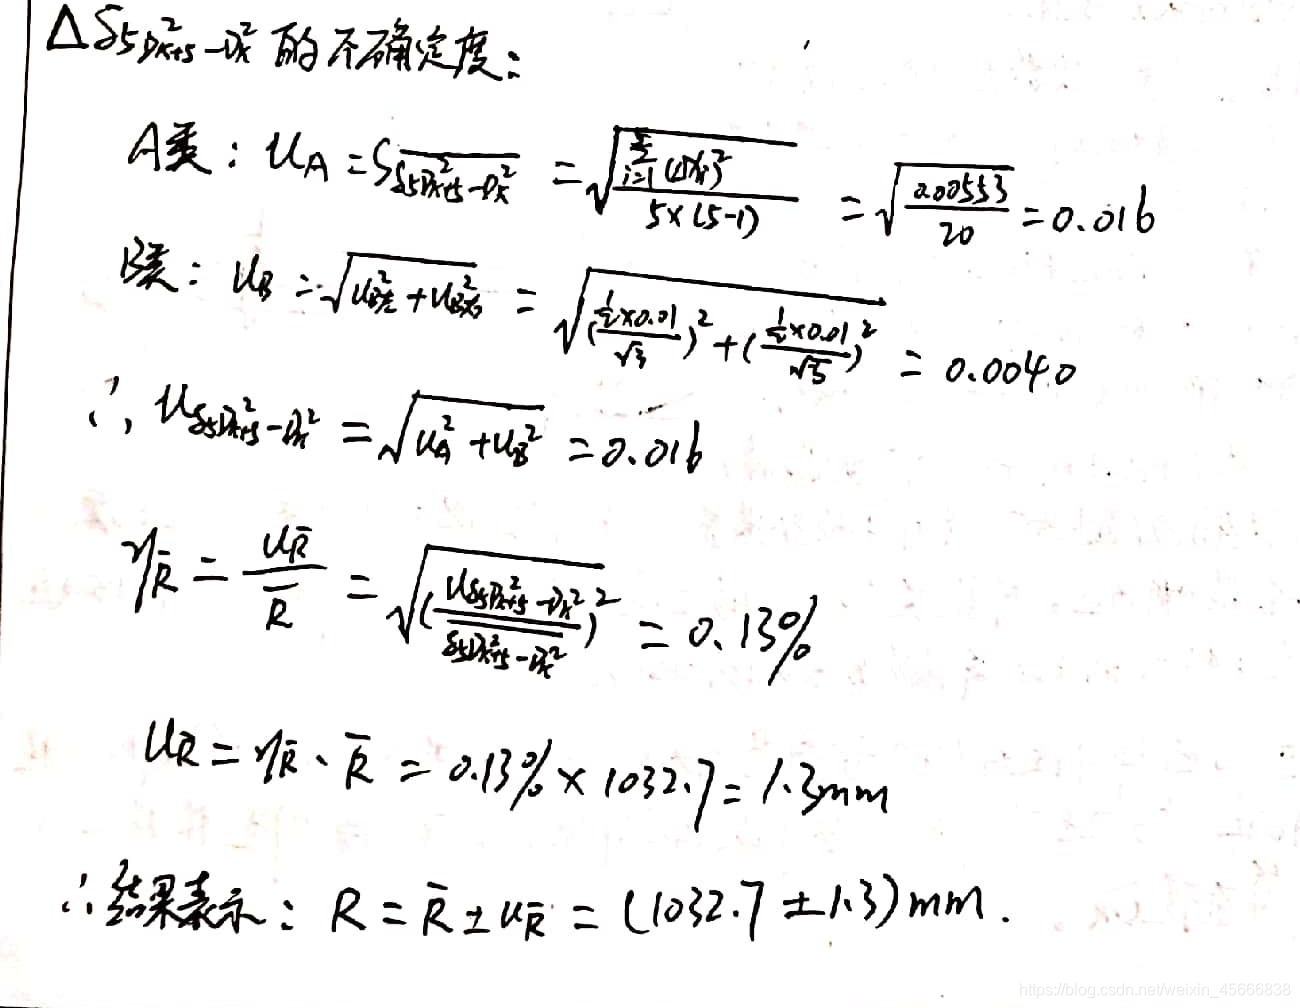 Δδ₅D²ₖ₊₅-D²ₖ 的不确定度:
A类: u_A = S_{\overline{δ₅D²ₖ₊₅-D²ₖ}} = √(∑_{i=1}^{5}(ΔXᵢ)²/(5×(5-1))) = √(0.00553/20) = 0.016
B类: u_B = √(u²_{B左}+u²_{B右}) = √((½×0.01/√3)²+(½×0.01/√3)²) = 0.0040
∴, u_{δ₅D²ₖ₊₅-D²ₖ} = √(u_A²+u_B²) = 0.016
η_R̄ = u_R̄/R̄ = √((u_{δ₅D²ₖ₊₅-D²ₖ}/\overline{δ₅D²ₖ₊₅-D²ₖ})²) = 0.13%
u_R̄ = η_R̄ · R̄ = 0.13% × 1032.7 = 1.3mm
∴结果表示: R = R̄ ± u_R̄ = (1032.7 ± 1.3)mm.
https://blog.csdn.net/weixin_45666838